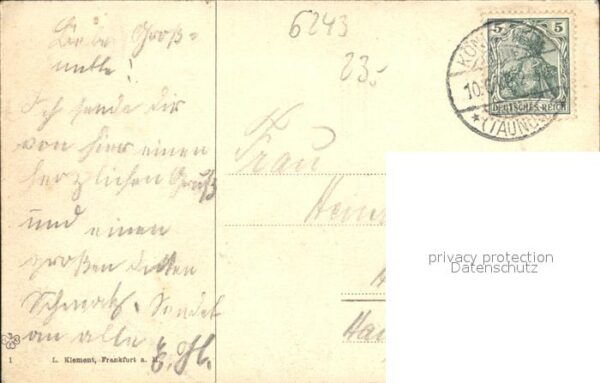 Liebe Groß=
mutter!
Ich sende dir
von hier einen
herzlichen Gruß
und einen
großen dicken
Schmatz. Sendet
an alle
E. H.
6243
23.-
Frau
Hein
Ha
5 5
DEUTSCHES REICH
KÖN
10.
* (TAUNUS)
privacy protection
Datenschutz
1 L. Klement, Frankfurt a. M.